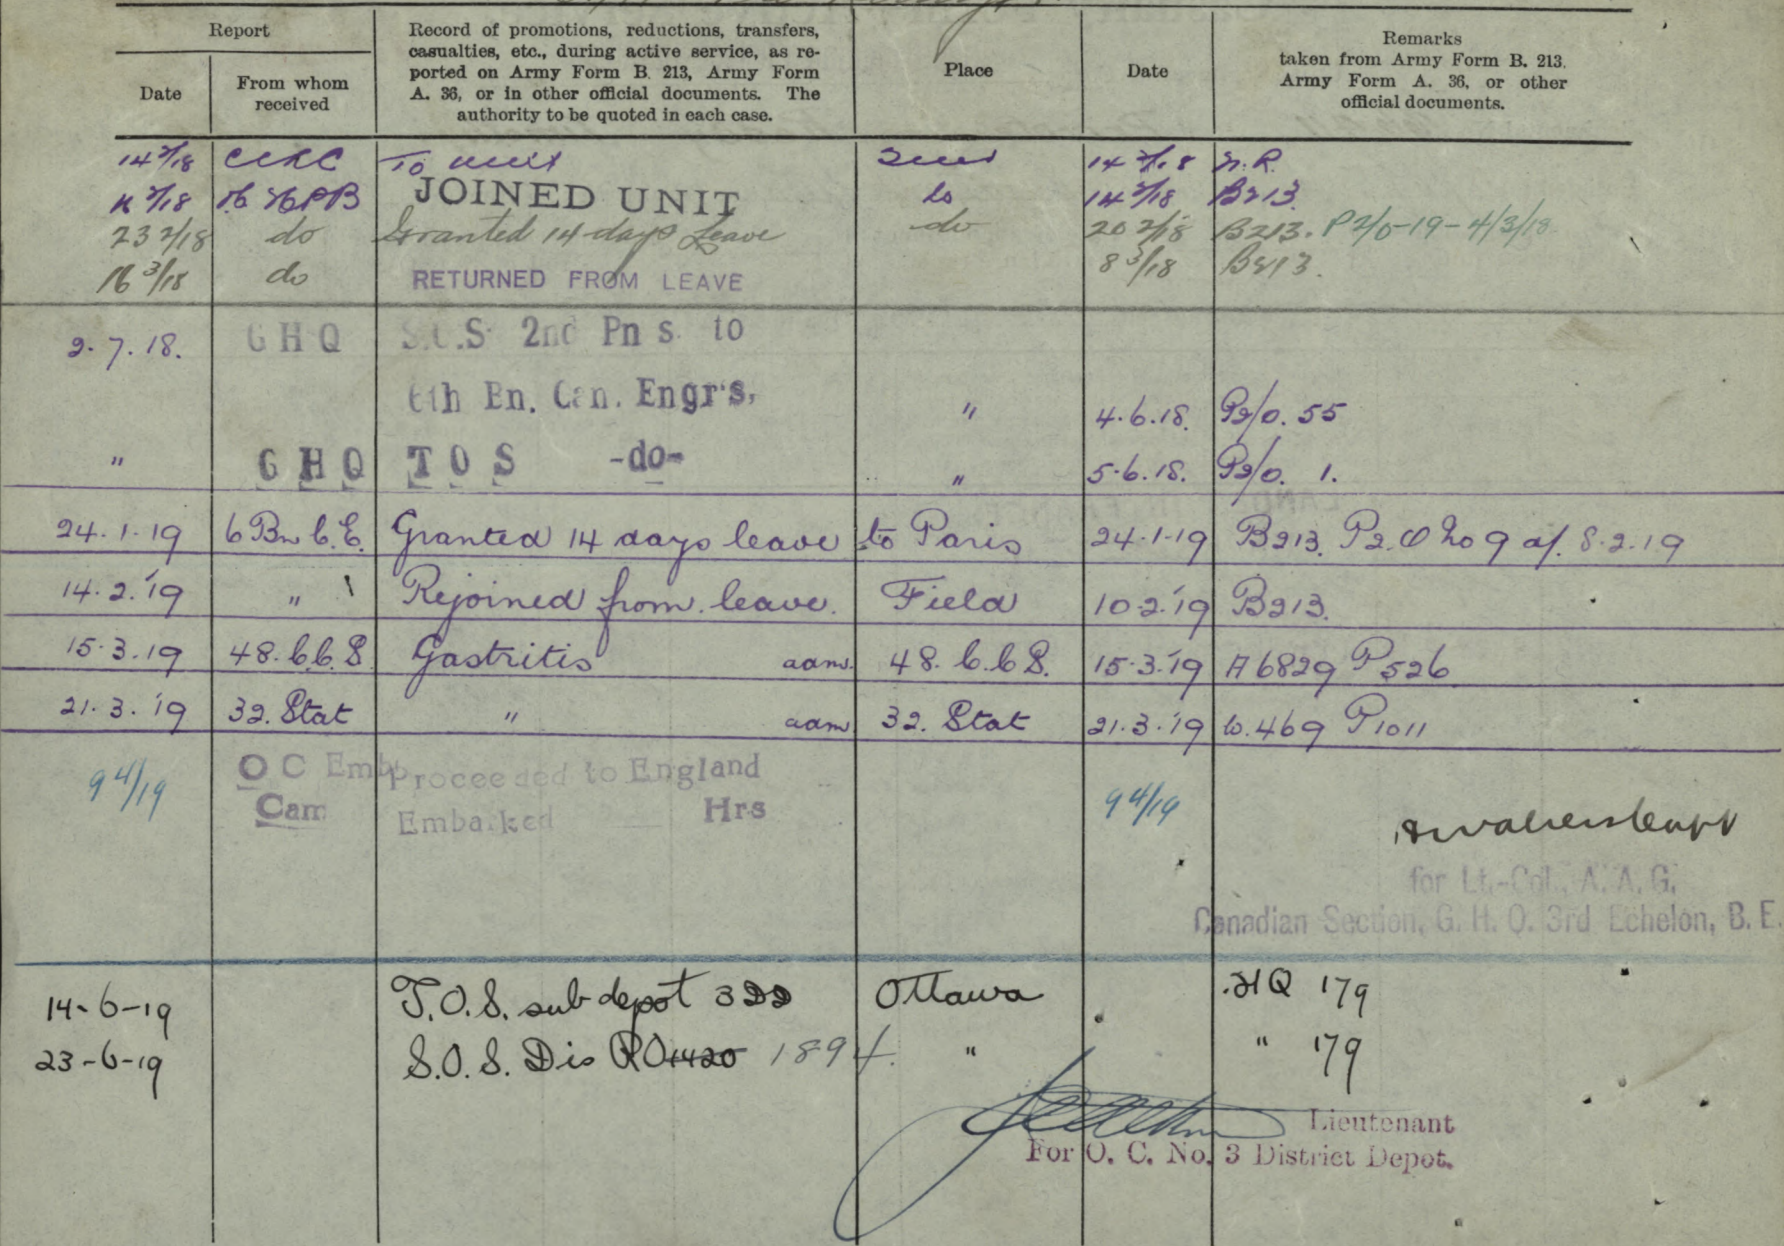 Report
Date
From whom
received
Record of promotions, reductions, transfers,
casualties, etc., during active service, as re-
ported on Army Form B. 213, Army Form
A. 36, or in other official documents. The
authority to be quoted in each case.
Place
Date
Remarks
taken from Army Form B. 213,
Army Form A. 36, or other
official documents.
14 2/18 CCRC To unit 14 2/18 N.R.
2/18 JOINED UNIT do 14 2/18 B213.
23 2/18 do Granted 14 days Leave do 20 2/18 B213. P2/0-19-4/3/18
16 3/18 do RETURNED FROM LEAVE 8 3/18 B213.
2.7.18. GHQ S.O.S. 2nd Pns. to
6th Bn. Can. Engr's, " 4.6.18. P2/0. 55
" GHQ TOS -do- " 5.6.18. P2/0. 1.
24.1.19 6 Bn C.E. Granted 14 days leave to Paris 24.1.19 B213. P2.O No 9 of 8.2.19
14.2.'19 " Rejoined from leave. Field 10.2.'19 B213.
15.3.19 48.C.C.S. Gastritis adm. 48.C.C.S. 15.3.'19 A6829 P526
21.3.'19 32. Stat " adm 32. Stat 21.3.'19 W.469 P1011
9 4/19 O C Emb Proceeded to England 9 4/19
Cam Embarked Hrs
for Lt.-Col., A. A. G.
Canadian Section, G. H. Q. 3rd Echelon, B. E.
14-6-19 T.O.S. sub depot 322 Ottawa HQ 179
23-6-19 S.O.S. Dis RO 1420 1894. " " 179
Lieutenant
For O. C. No. 3 District Depot.